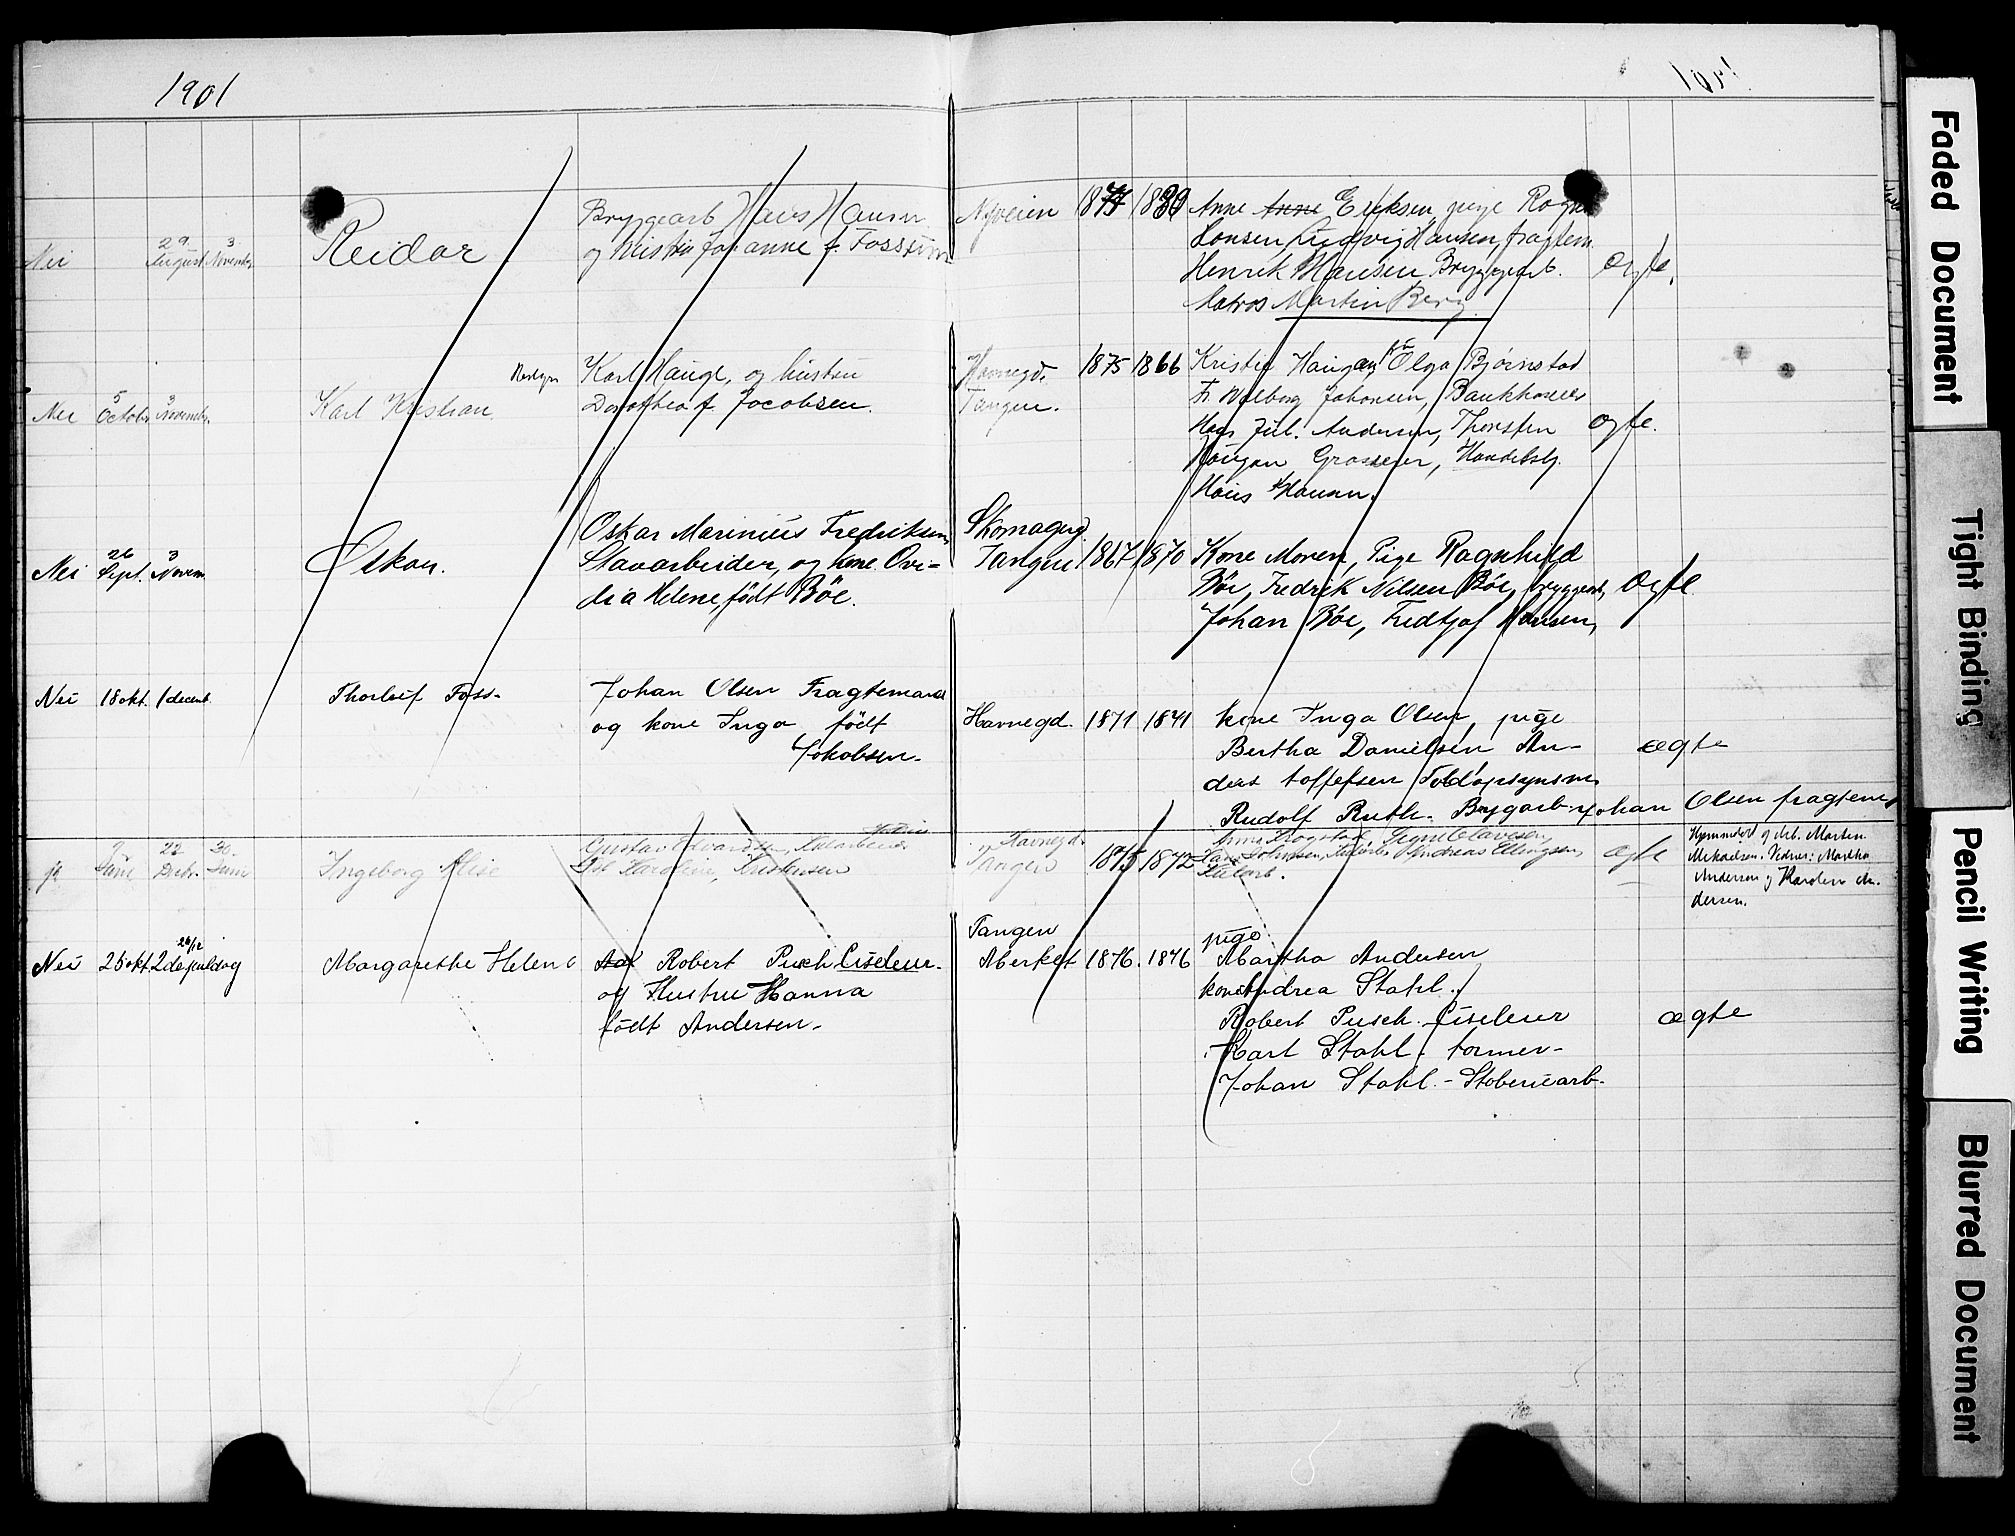 1901
1901
Nei
29 August
3 November
Reidar
Bryggearb Hans Hansen
og hustru Johanne f. Fossum
Nyveien
1874
1880
Anne Anne Eriksen, pige
Hansen, Ludvig Hansen, fragtem.
Henrik Hansen Bryggearb.
Matros Martin Berg
Ægte.
Nei
5 October
3 November
Karl Kristian
Karl Hauge, og hustru
Dorothea f. Jacobsen.
Havnegd.
Tangen.
1875
1866
Olga Bjørnstad
Fr. Valborg Johansen,
Hans Jul. Andersen, Thorsten
Haugan Grosserer, Handelsbf.
Hans Hansen.
Ægte.
Nei
26 Sept.
3 Novem.
Oskar.
Oskar Marinius Fredriksen,
Stavarbeider, og kone Ovi-
dia Helene, født Böe.
Skomagergd.
Tangen
1867
1870
Kone Moren, Pige Ragnhild
Böe, Fredrik Nilsen Böe, bryggearb,
Johan Böe, Fridtjof Hansen,
Ægte
Nei
18 okt.
1 decemb.
Thorleif Foss-
Johan Olsen Fragtemand
og kone Inga født
Jakobsen.
Havnegd.
1871
1871
kone Inga Olsen, pige
Bertha Danielsen An-
ders toffefsen Toldopsynsm.
Rudolf Ruth. Brygarb. Johan Olsen fragtem,
ægte
ja
9 Juni
22 Debr.
30. Juni
Ingeborg Alise
Gustav Edvardsen,
Karoline, Kristensen
Havnegd.
Tangen
1875
1872
Anna Skogstad, Signe Olavesen,
Andreas Ellingsen,
ægte
Hjemmedøbt af Arb. Martin
Mikaelsen. Vidner: Martha
Andersen og Karoline An-
dersen.
Nei
25 okt.
26/12
2de juldag
Margarethe Helene
Robert Pusch Ciseleur.
og Hustru Hanna
født Andersen.
Tangen
Merket
1876.
1876
pige
Martha Andersen
kone Andrea Stahl.
Robert Pusch. Ciseleur
Karl Stahl. former-
Johan Stahl. - Stoberiearb.
ægte
Faded Document
Tight Binding
Pencil Writing
Blurred Document